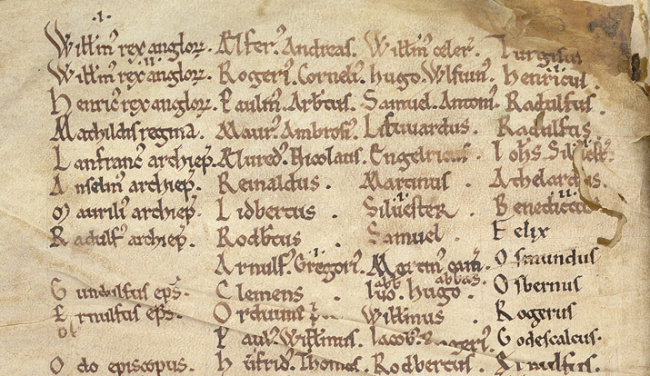 .I.
Willm rex anglor. Ælfer. Andreas. Willm celer. Turgisus
.II.
Willm rex anglor. Rogeri. Corneli. Hugo. Wlfuin. Henricus.
Henric rex anglor. Paulin. Arbtus. Samuel. Antoni. Radulfus.
Mathildis regina. Maur. Ambrosi. Lifwardus. Radulfus.
Lanfranc archiep. Ælured. Nicolaus. Engelricus. Iohs. Siluest.
Anselm archiep. Reinaldus. Martinus. Athelardus.
.I. .II.
Maurili archiep. Lidbertus. Siluester. Benedictus
Radulf archiep. Rodbtus. Samuel. Felix
.I.
Arnulf. Gregori. Martin Osmundus
abb abbas.
Gundulfus eps. Clemens. Iuo. Hugo. Osbernus
Ernulfus eps. Orduuin pr. Willmus Rogerus
Paul. Willmus. Iacob. Godescalcus.
Odo episcopus. Hufrid. Thomas. Rodbertus. Arnulfus.